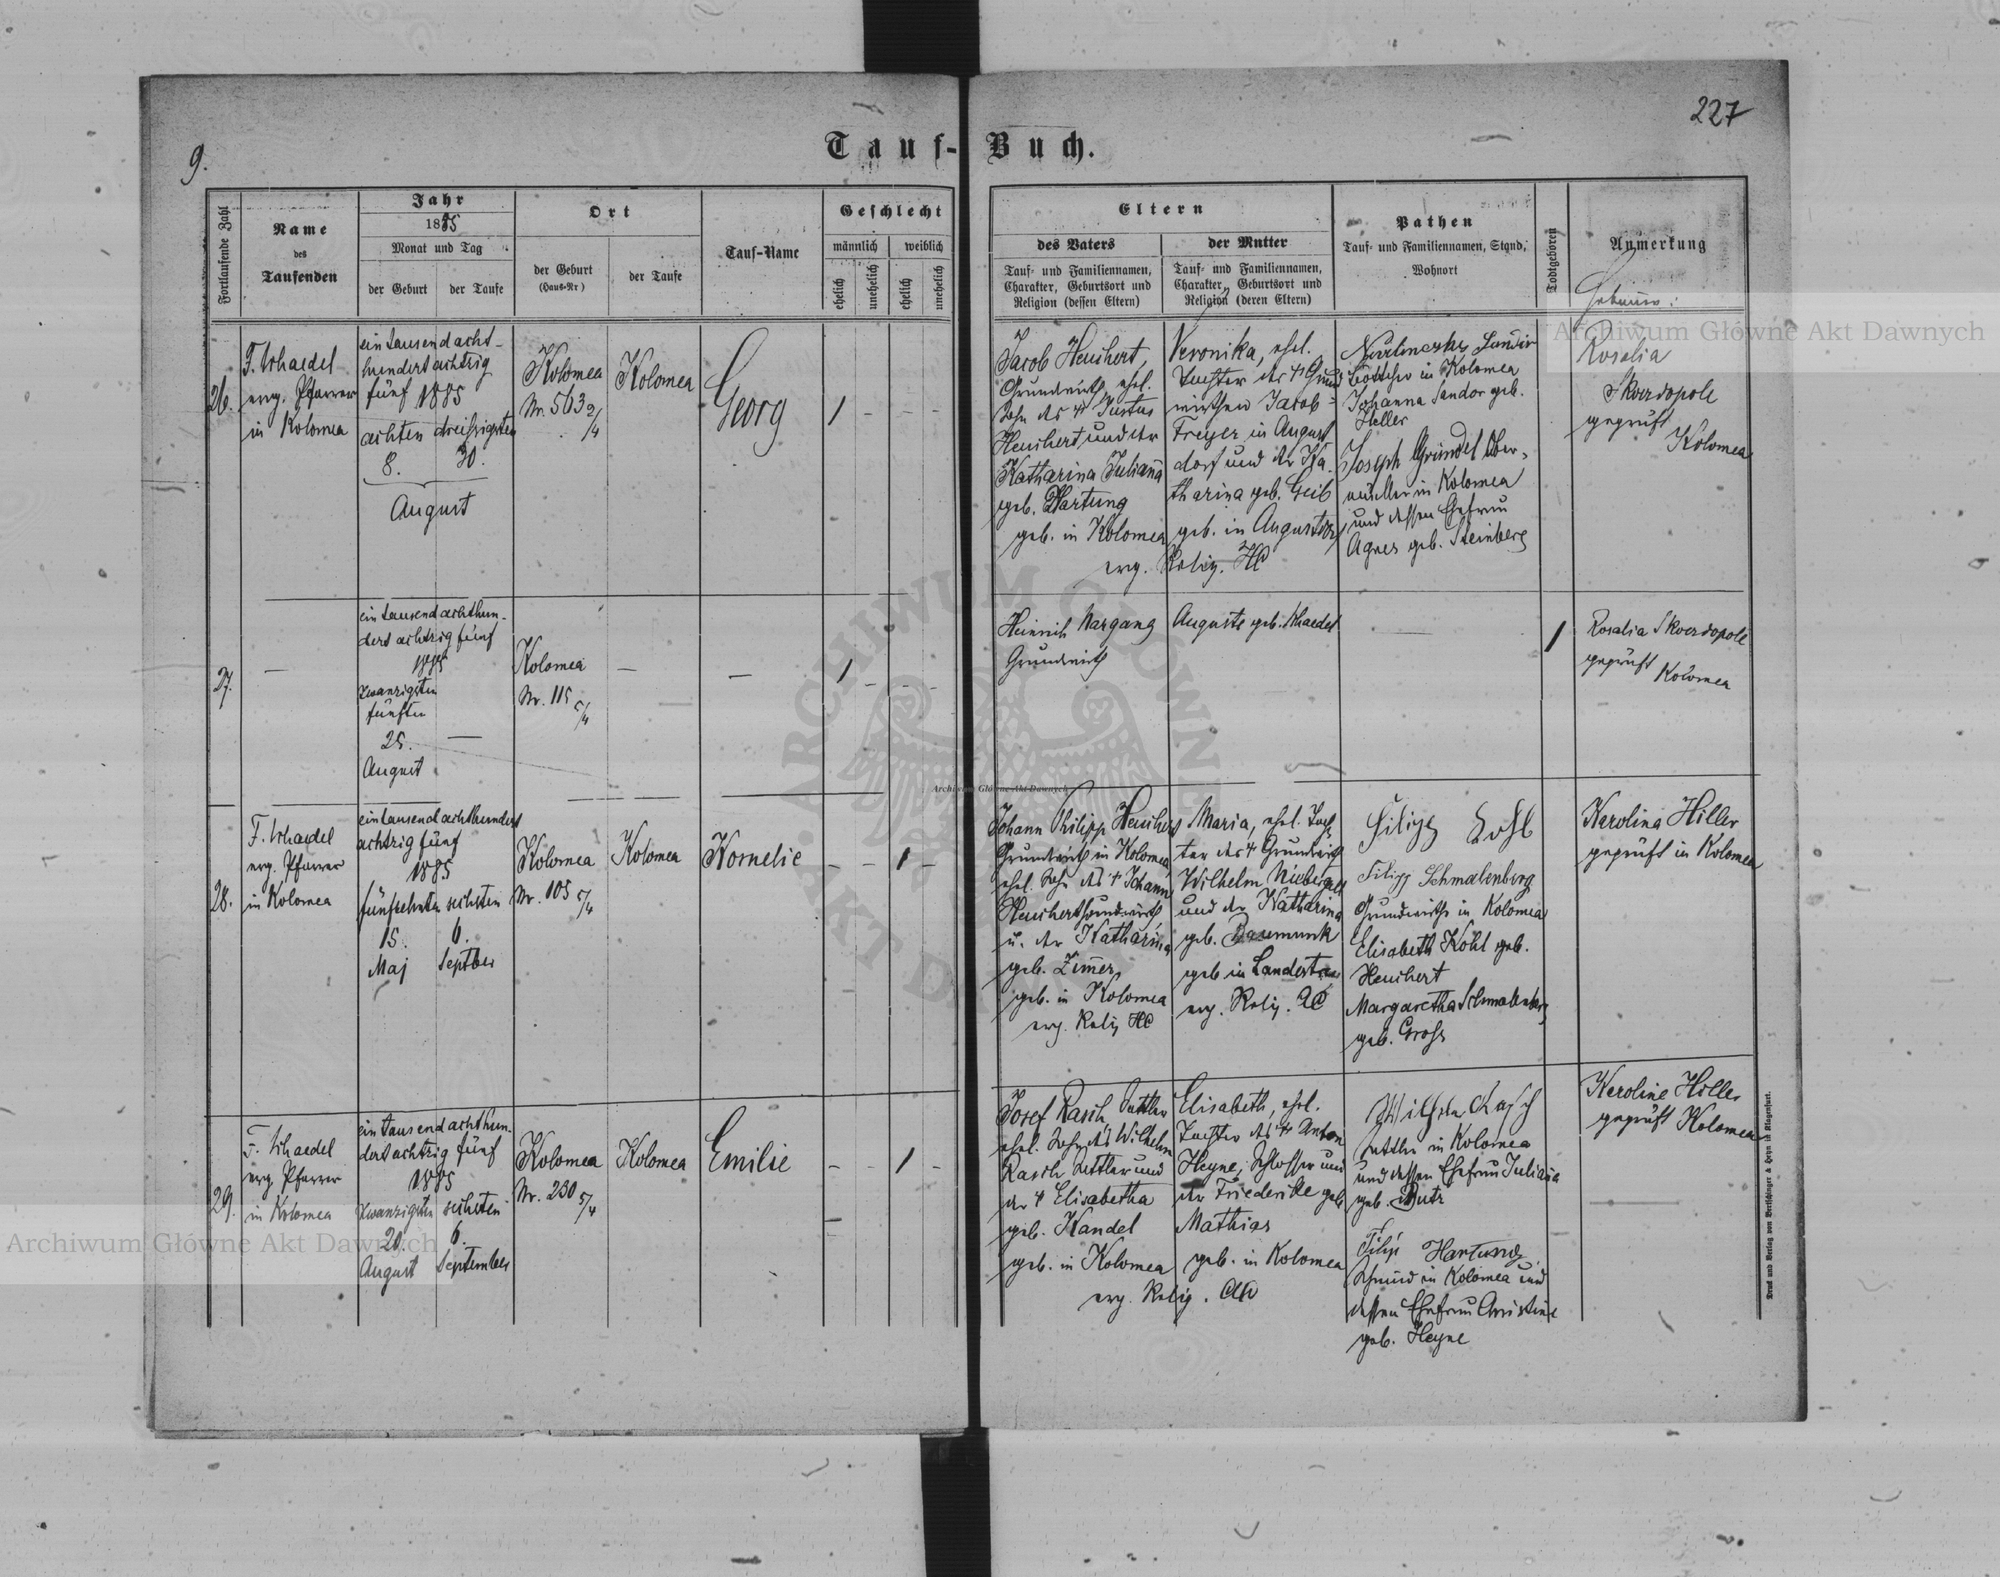 227
9.
Tauf-Buch.
Fortlaufende Zahl
Name
des
Taufenden
Jahr
1885
Monat und Tag
der Geburt
der Taufe
Ort
der Geburt
(Haus-Nr)
der Taufe
Tauf-Name
Geschlecht
männlich
weiblich
ehelich
unehelich
ehelich
unehelich
Eltern
des Vaters
Tauf- und Familiennamen,
Charakter, Geburtsort und
Religion (dessen Eltern)
der Mutter
Tauf- und Familiennamen,
Charakter, Geburtsort und
Religion (deren Eltern)
Pathen
Tauf- und Familiennamen, Stand,
Wohnort
Todtgeboren
Anmerkung
26.
F. Schaedel
evg. Pfarrer
in Kolomea
ein tausend acht-
hundert achtzig
fünf 1885
achten dreißigsten
8. 30.
August
Kolomea
Nr. 563 2/4
Kolomea
Georg
1 - - -
Jacob Heuchert,
Grundwirth, ehel.
Sohn des † Justus
Heuchert und der
Katharina Juliana
geb. Hartung
geb. in Kolomea
Veronika, ehel.
Tochter des † Grund
wirthen Jacob
Freyer in August
dorf und der Ka-
tharina geb. Geib
geb. in Augustdorf
evg. Relig. HC
Böttcher in Kolomea
Johanna Sandor geb.
Heller
Joseph Gründel Ober-
müller in Kolomea
und dessen Ehefrau
Agnes geb. Steinberg
Rosalia
Skverdopole
geprüft
Kolomea
27.
-
ein tausend achthun-
dert achtzig fünf
1885
zwanzigsten
fünften
25. -
August
Kolomea
Nr. 115 5/4
-
-
1 - - -
Heinrich Margang
Grundwirth
Auguste geb. Schaedel
1
Rosalia Skverdopole
geprüft
Kolomea
28.
F. Schaedel
evg. Pfarrer
in Kolomea
ein tausend achthundert
achtzig fünf
1885
fünfzehnten sechsten
15. 6.
Maj Septber
Kolomea
Nr. 105 5/4
Kolomea
Kornelie
- - 1 -
Johann Philipp Heuchert
Grundwirth in Kolomea,
ehel. Sohn des † Johann
Heuchert Grundwirth
u. der Katharina
geb. Zimer
geb. in Kolomea
evg. Relig HC
Maria, ehel. Toch-
ter des † Grundwirth
Wilhelm Niebergall
und der Katharina
geb. Baumunk
geb. in Landestreu
evg. Relig. AC
Filipp Kohl
Filipp Schmalenberg
Grundwirthe in Kolomea
Elisabeth Kohl geb.
Heuchert
Margaretha Schmalenberg
geb. Gross
Karolina Hiller
geprüft in Kolomea
29.
F. Schaedel
evg. Pfarrer
in Kolomea
ein tausend achthun-
dert achtzig fünf
1885
zwanzigsten sechsten
20. 6.
August September
Kolomea
Nr. 230 5/4
Kolomea
Emilie
- - 1 -
Josef Rasch, Sattler
ehel. Sohn des Wilhelm
Rasch Sattler und
der † Elisabetha
geb. Kandel
geb. in Kolomea
Elisabeth, ehel.
Tochter des † Anton
Heyne, Schlosser und
der Friederike geb.
Mathias
geb. in Kolomea
evg. Relig. AC
Wilhelm Rasch
Sattler in Kolomea
und dessen Ehefrau Juliana
geb. Butz
Filip Hartung,
Schmied in Kolomea und
dessen Ehefrau Christine
geb. Heyne
Karoline Hiller
geprüft Kolomea
Druck und Verlag von Bertschinger & Heyn in Klagenfurt.
Archiwum Główne Akt Dawnych
Archiwum Główne Akt Dawnych
Archiwum Główne Akt Dawnych
ARCHIWUM GŁÓWNE AKT DAWNYCH